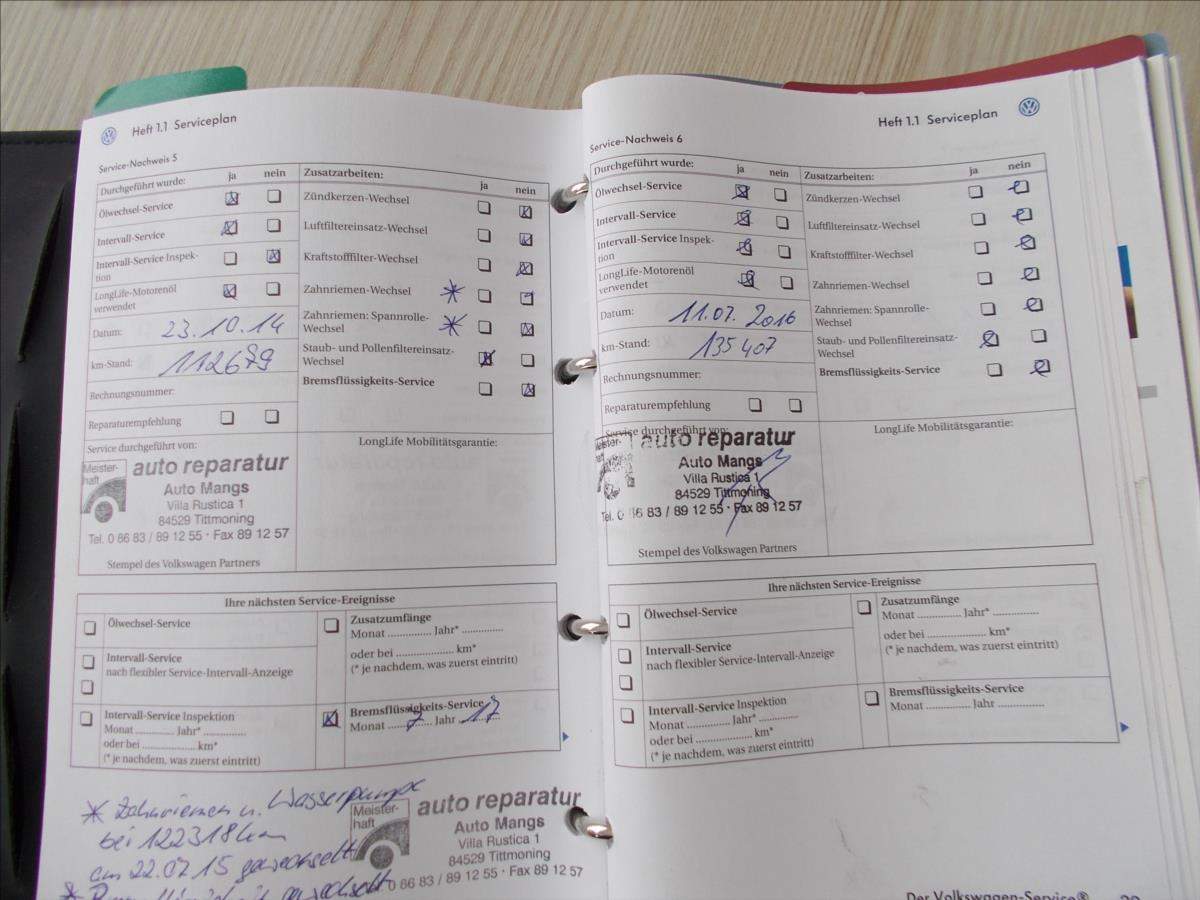 Heft 1.1 Serviceplan
Service-Nachweis 5
Durchgeführt wurde: ja nein
Ölwechsel-Service
Intervall-Service
Intervall-Service Inspek-
tion
LongLife-Motorenöl
verwendet
Datum: 23.10.14
km-Stand: 112679
Rechnungsnummer:
Reparaturempfehlung
Zusatzarbeiten: ja nein
Zündkerzen-Wechsel
Luftfiltereinsatz-Wechsel
Kraftstofffilter-Wechsel
Zahnriemen-Wechsel *
Zahnriemen: Spannrolle-
Wechsel *
Staub- und Pollenfiltereinsatz-
Wechsel
Bremsflüssigkeits-Service
Service durchgeführt von:
Meister-
haft
auto reparatur
Auto Mangs
Villa Rustica 1
84529 Tittmoning
Tel. 0 86 83 / 89 12 55 · Fax 89 12 57
Stempel des Volkswagen Partners
LongLife Mobilitätsgarantie:
Ihre nächsten Service-Ereignisse
Ölwechsel-Service
Intervall-Service
nach flexibler Service-Intervall-Anzeige
Intervall-Service Inspektion
Monat ............ Jahr* ............
oder bei ............ km*
(* je nachdem, was zuerst eintritt)
Zusatzumfänge
Monat ............ Jahr* ............
oder bei ............ km*
(* je nachdem, was zuerst eintritt)
Bremsflüssigkeits-Service
Monat 7 Jahr 17
* Zahnriemen u. Wasserpumpe
bei 122318km
am 22.07.15 gewechselt
Meister-
haft
auto reparatur
Auto Mangs
Villa Rustica 1
84529 Tittmoning
0 86 83 / 89 12 55 · Fax 89 12 57
* gewechselt
Heft 1.1 Serviceplan
Service-Nachweis 6
Durchgeführt wurde: ja nein
Ölwechsel-Service
Intervall-Service
Intervall-Service Inspek-
tion
LongLife-Motorenöl
verwendet
Datum: 11.07.2016
km-Stand: 135407
Rechnungsnummer:
Reparaturempfehlung
Zusatzarbeiten: ja nein
Zündkerzen-Wechsel
Luftfiltereinsatz-Wechsel
Kraftstofffilter-Wechsel
Zahnriemen-Wechsel
Zahnriemen: Spannrolle-
Wechsel
Staub- und Pollenfiltereinsatz-
Wechsel
Bremsflüssigkeits-Service
Service durchgeführt von:
auto reparatur
Auto Mangs
Villa Rustica 1
84529 Tittmoning
Tel. 0 86 83 / 89 12 55 · Fax 89 12 57
Stempel des Volkswagen Partners
LongLife Mobilitätsgarantie:
Ihre nächsten Service-Ereignisse
Ölwechsel-Service
Intervall-Service
nach flexibler Service-Intervall-Anzeige
Intervall-Service Inspektion
Monat ............ Jahr* ............
oder bei ............ km*
(* je nachdem, was zuerst eintritt)
Zusatzumfänge
Monat ............ Jahr* ............
oder bei ............ km*
(* je nachdem, was zuerst eintritt)
Bremsflüssigkeits-Service
Monat ............ Jahr ............
Der Volkswagen-Service®